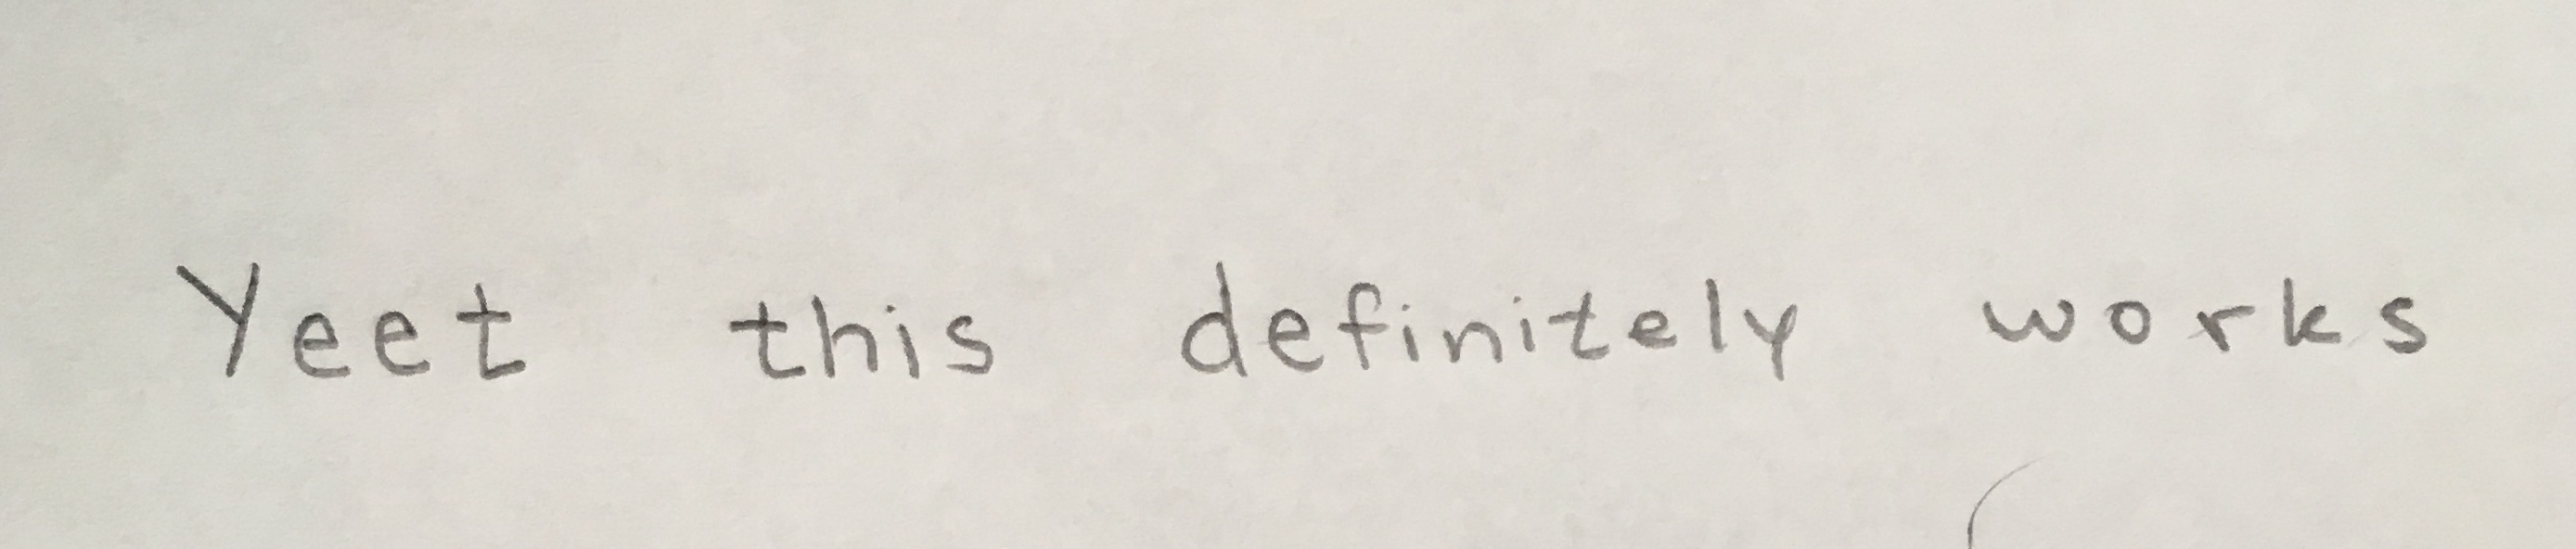 Yeet this definitely works